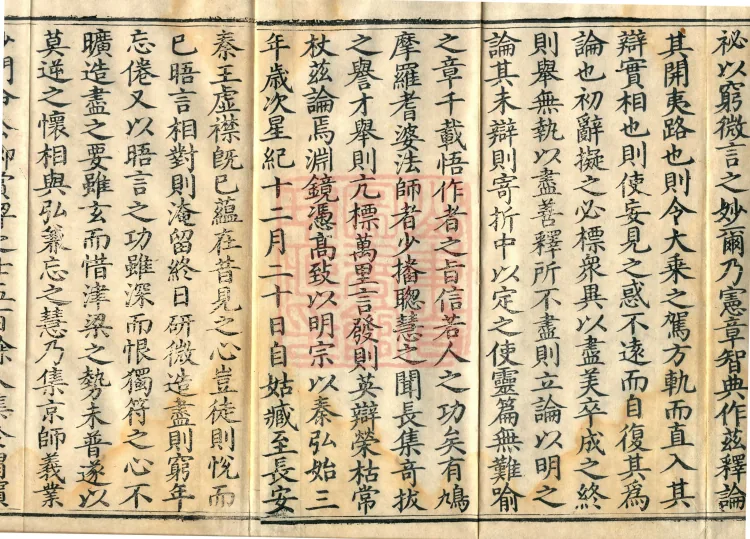 祕以窮微言之妙爾乃憲章智典作茲釋論
其開夷路也則令大乘之駕方軌而直入其
辯實相也則使妄見之惑不遠而自復其爲
論也初辭擬之必標衆異以盡美卒成之終
則舉無執以盡善釋所不盡則立論以明之
論其未辯則寄折中以定之使靈篇無難喻
之章千載悟作者之旨信若人之功矣有鳩
摩羅耆婆法師者少播聰慧之聞長集奇拔
之譽才舉則亢標萬里言發則英辯榮枯常
杖茲論焉淵鏡憑高致以明宗以秦弘始三
年歲次星紀十二月二十日自姑臧至長安
秦王虛襟旣已蘊在昔見之心豈徒則悅而
已晤言相對則淹留終日研微造盡則窮年
忘倦又以晤言之功雖深而恨獨符之心不
曠造盡之要雖玄而惜津梁之勢未普遂以
莫逆之懷相與弘兼忘之慧乃集京師義業